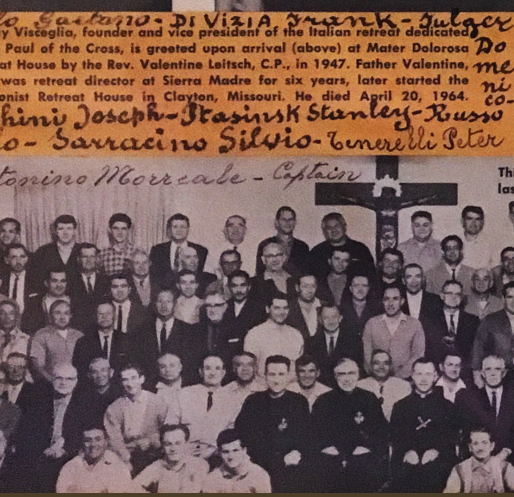 o Gaetano - DI VIZIA Frank - Fulger
y Visceglia, founder and vice president of the Italian retreat dedicated
Paul of the Cross, is greeted upon arrival (above) at Mater Dolorosa
at House by the Rev. Valentine Leitsch, C.P., in 1947. Father Valentine,
was retreat director at Sierra Madre for six years, later started the
onist Retreat House in Clayton, Missouri. He died April 20, 1964.
Do
me
ni
co-
hini Joseph - Ptasinsk Stanley - Russo
o - Sarracino Silvio - Tenerelli Peter
tonino Morreale - Captain
Thi
las